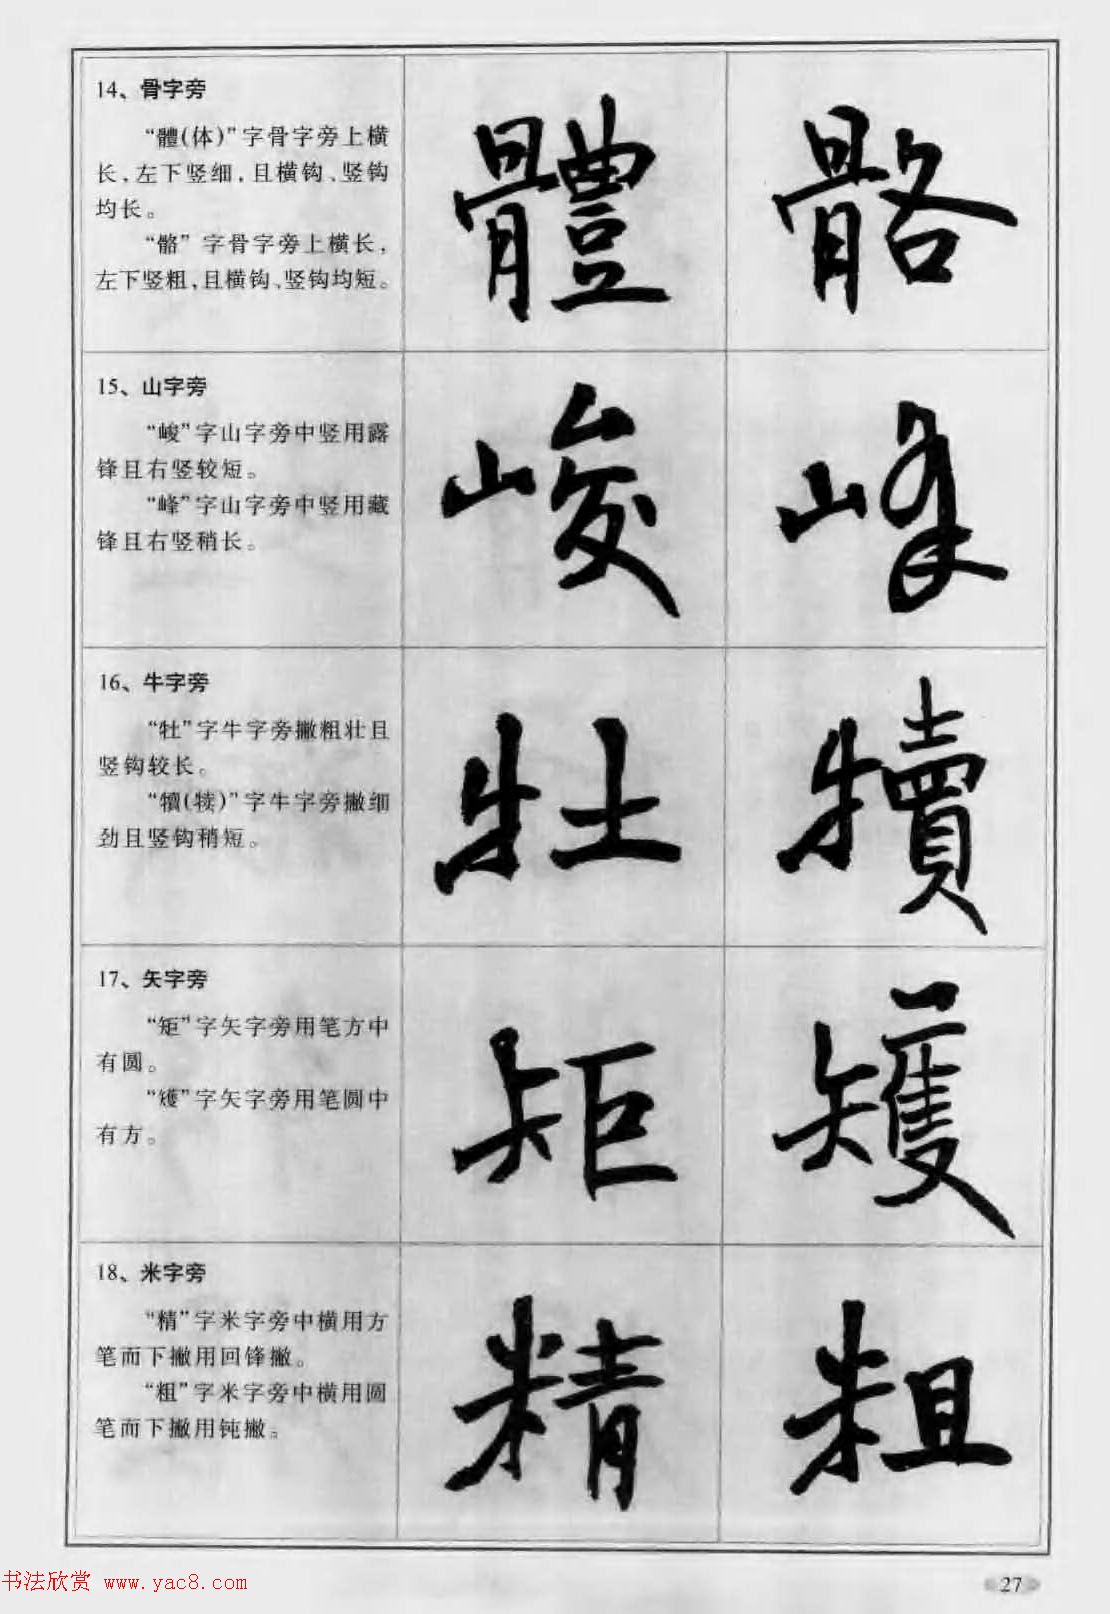 14、骨字旁
“體(体)”字骨字旁上横
长，左下竖细，且横钩、竖钩
均长。
“骼”字骨字旁上横长，
左下竖粗，且横钩、竖钩均短。
體 骼
15、山字旁
“峻”字山字旁中竖用露
锋且右竖较短。
“峰”字山字旁中竖用藏
锋且右竖稍长。
峻 峰
16、牛字旁
“牡”字牛字旁撇粗壮且
竖钩较长。
“犢(犊)”字牛字旁撇细
劲且竖钩稍短。
牡 犢
17、矢字旁
“矩”字矢字旁用笔方中
有圆。
“矱”字矢字旁用笔圆中
有方。
矩 矱
18、米字旁
“精”字米字旁中横用方
笔而下撇用回锋撇。
“粗”字米字旁中横用圆
笔而下撇用钝撇。
精 粗
书法欣赏 www.yac8.com
27